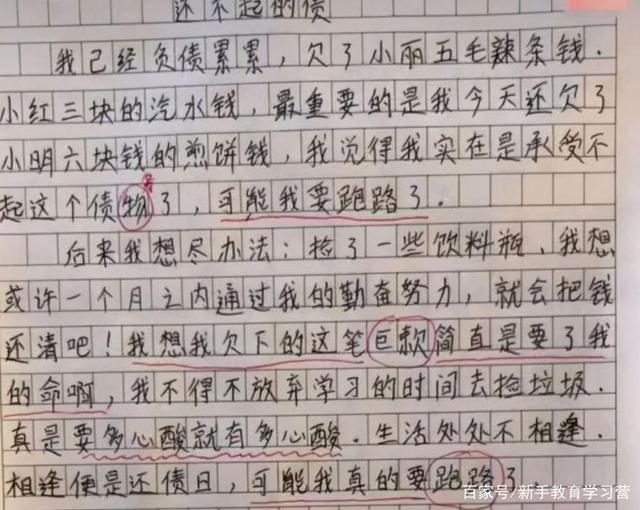 还不起的债
我已经负债累累，欠了小丽五毛辣条钱.
小红三块的汽水钱，最重要的是我今天还欠了
小明六块钱的煎饼钱，我觉得我实在是承受不
起这个债物了，可能我要跑路了.
后来我想尽办法：捡了一些饮料瓶、我想
或许一个月之内通过我的勤奋努力，就会把钱
还清吧！我想我欠下的这笔巨款简直是要了我
的命啊，我不得不放弃学习的时间去捡垃圾.
真是要多心酸就有多心酸.生活处处不相逢.
相逢便是还债日，可能我真的要跑路了.
百家号/新手教育学习营